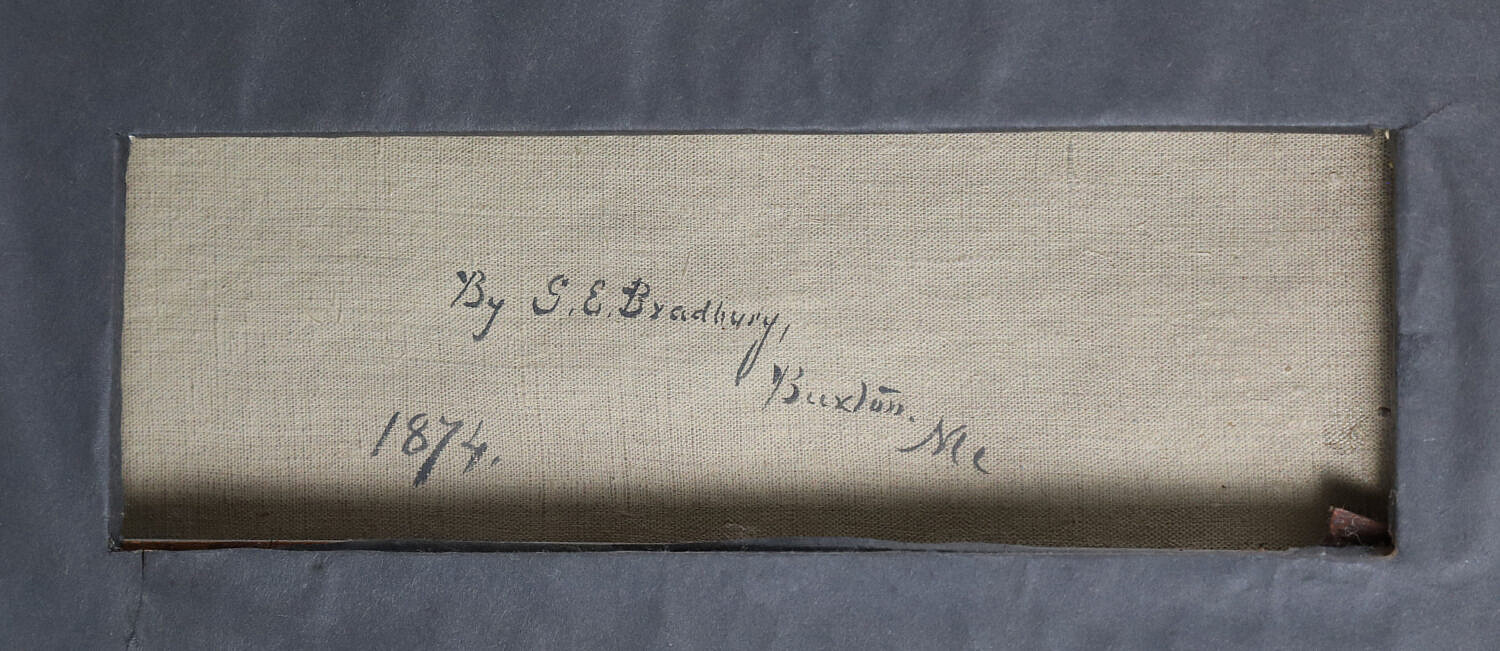 By G. E. Bradbury,
Buxton. Me
1874.